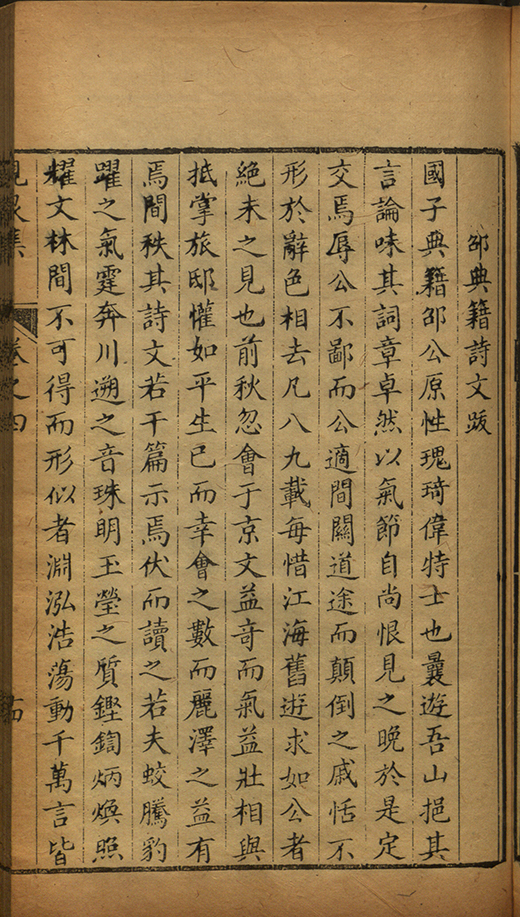 邵典籍詩文跋
國子典籍邵公原性瑰琦偉特士也曩遊吾山挹其
言論味其詞章卓然以氣節自尚恨見之晚於是定
交焉辱公不鄙而公適間關道途而顛倒之戚恬不
形於辭色相去凡八九載每惜江海舊遊求如公者
絶未之見也前秋忽會于京文益奇而氣益壯相與
抵掌旅邸懽如平生已而幸會之數而麗澤之益有
焉間秩其詩文若干篇示焉伏而讀之若夫蛟騰豹
躍之氣霆奔川遡之音珠明玉瑩之質鏗鍧炳煥照
耀文林間不可得而形似者淵泓浩蕩動千萬言皆
卷之四